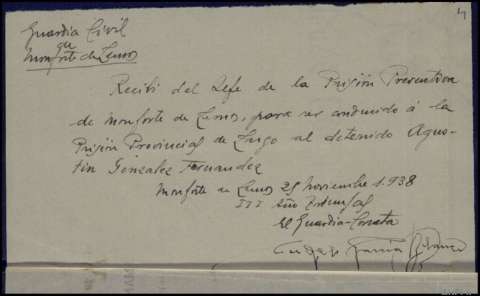 4
Guardia Civil
Monforte de Lemos
Recibí del Jefe de la Prisión Preventiva
de Monforte de Lemos, para ser conducido á la
Prisión Provincial de Lugo al detenido Agus-
tin Gonzalez Fernandez
Monforte de Lemos 25 noviembre 1.938
III Año Triunfal
El Guardia-
Garcia